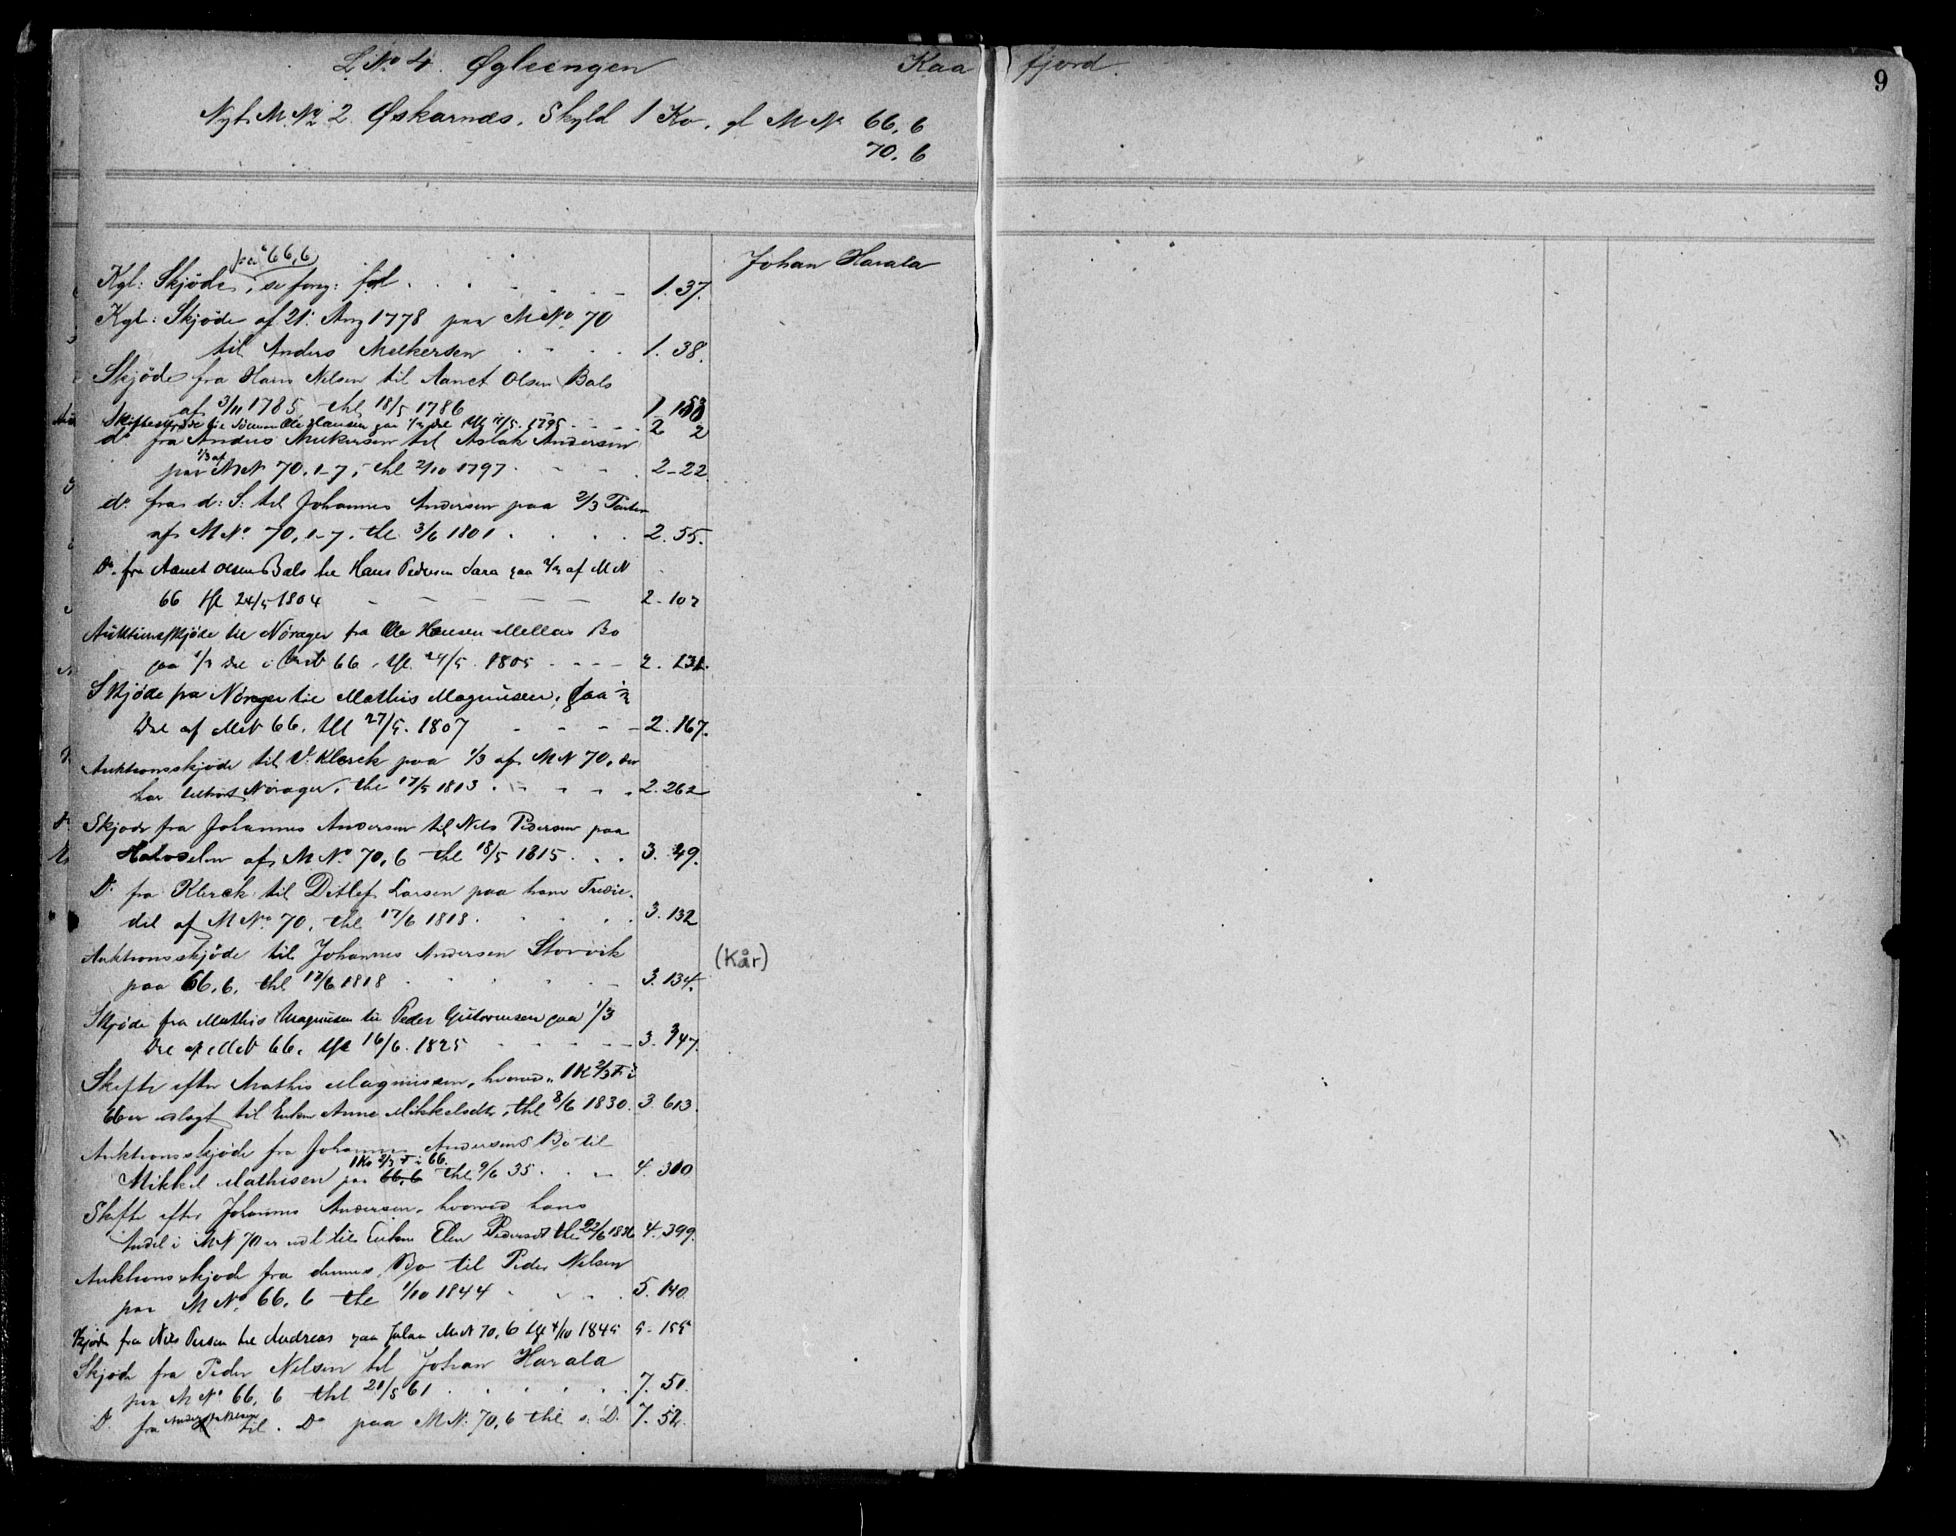 L. No 4. Øgleengen Kaa fjord.
9
Nyt M. No 2. Øskarnæs. Skyld 1 Ko. gl M No 66, 6
70. 6
paa 66,6
Kgl: Skjøde, se foreg: fol 1. 37.
Johan Harala
Kgl: Skjøde af 21. Aug 1778 paa M No 70
til Anders Melkersen 1. 38.
Skjøde fra Hans Nilsen til Aanet Olsen Bals
af 3/11 1785, thl 18/5 1786
Ole Hansen paa 1/3 Del thl 1795 2 2
do fra Anders Melkersen til Aslak Andersen
paa 1/3 af M N 70, 1-7, thl 2/10 1797 2-22
do fra d: S: til Johannes Andersen paa 2/3 Parter
af M No 70, 1-7. thl 3/6 1801 2. 55.
Do. fra Aanet Olsen Bals til Hans Pedersen Sara paa af M N
66 thl 24/5 1804 2-107
Auktionsskjøde til Nørager fra Ole Hansen Mellas Bo
paa 1/3 Del i 66, thl 24/5 1805 2. 131.
Skjøde fra Nørager til Mathis Magnusen, paa
Del af M N 66. thl 27/5. 1807 2. 167.
Auktionsskjøde til V. Klerck paa 1/3 af M N 70, der
har tilhørt Nørager, thl 17/5 1813 2. 262
Skjøde fra Johannes Andersen til Nils Pedersen paa
Halvdelen af M No 70, 6 thl 18/5 1815 3. 49.
Do fra Klerck til Ditlef Larsen paa hans Tredie-
del af M No. 70, thl 17/6 1818 3. 132
Auktionsskjøde til Johannes Andersen Storvik
(Kår)
paa 66, 6, thl 17/6 1818 3. 134.
Skjøde fra Mathis Magnusen til Peder Gutormsen paa 1/3
Del af M N 66, thl 16/6. 1825 3. 347.
Skifte efter Mathis Magnussen, hvorved 1 K 2/3 F i
66 er udlagt til Enken Anne Mikkelsdtr, thl 8/6 1830. 3. 613.
Auktionsskjøde fra Johannes Andersens Bo til
1 Ko 2/3 F i 66.
Mikkel Mathisen paa 66,6 thl 9/6 35. 4. 310
Skifte efter Johannes Andersen, hvorved hans
Andel i M N 70 er udl til Enken Elen Pedersdt thl 22/6 1836 4. 399.
Auktionsskjøde fra dennes Bo til Peder Nilsen
paa M No. 66, 6 thl 1/10 1844 5. 140.
Skjøde fra Nils Persen til Andreas paa M N 70, 6 thl 4/10 1845 5-155
Skjøde fra Peder Nilsen til Johan Harala
paa M No 66, 6 thl 28/5 61 7. 51.
Do fra til Do paa M N: 70,6 thl s. D. 7. 52.